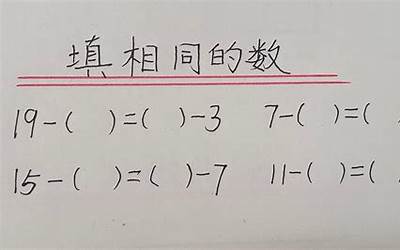 填相同的数
19-( )=( )-3 7-( )=(
15-( )=( )-7 11-( )=(